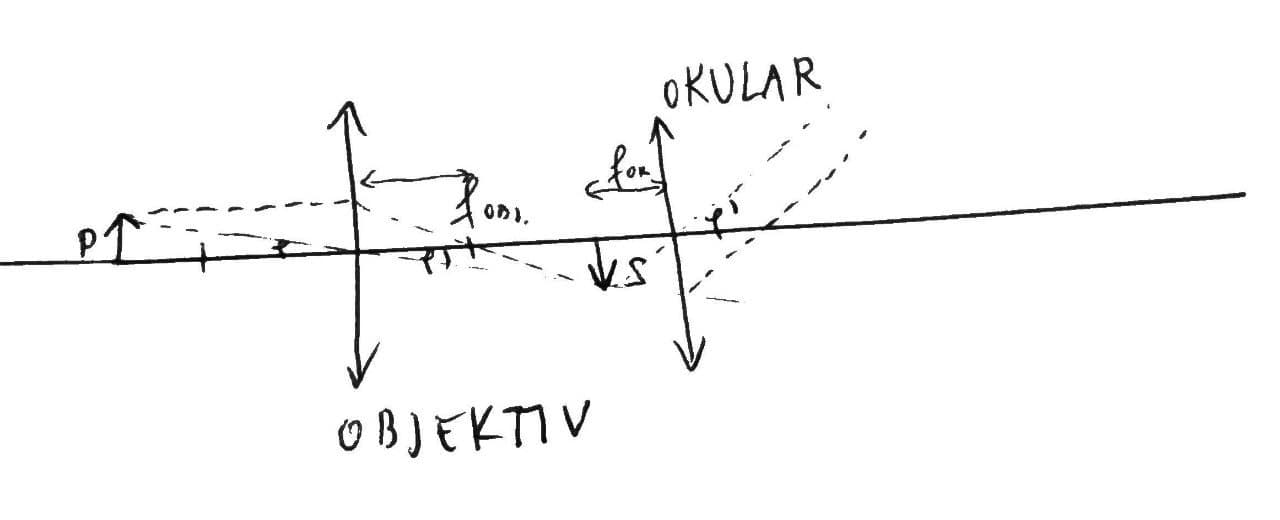 OKULAR
f OK
P
f OBJ.
φ'
φ
φ'
S
OBJEKTIV